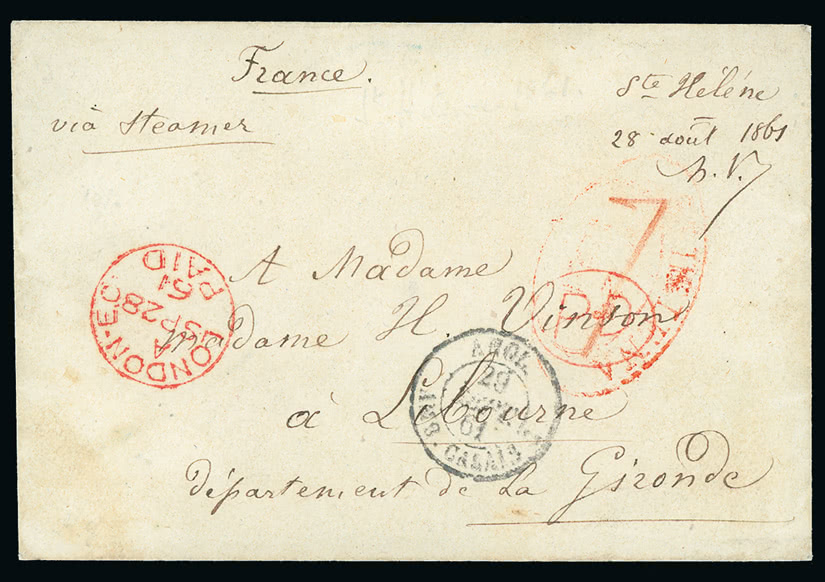 France.
Ste Héléne
via steamer
28 août 1861
h. V.
7
PAID
61
SP 28
LONDON·E.C
A Madame
PD
madame H. Vinson
ANGL.
29
61
CALAIS
à Libourne
département de La Gironde